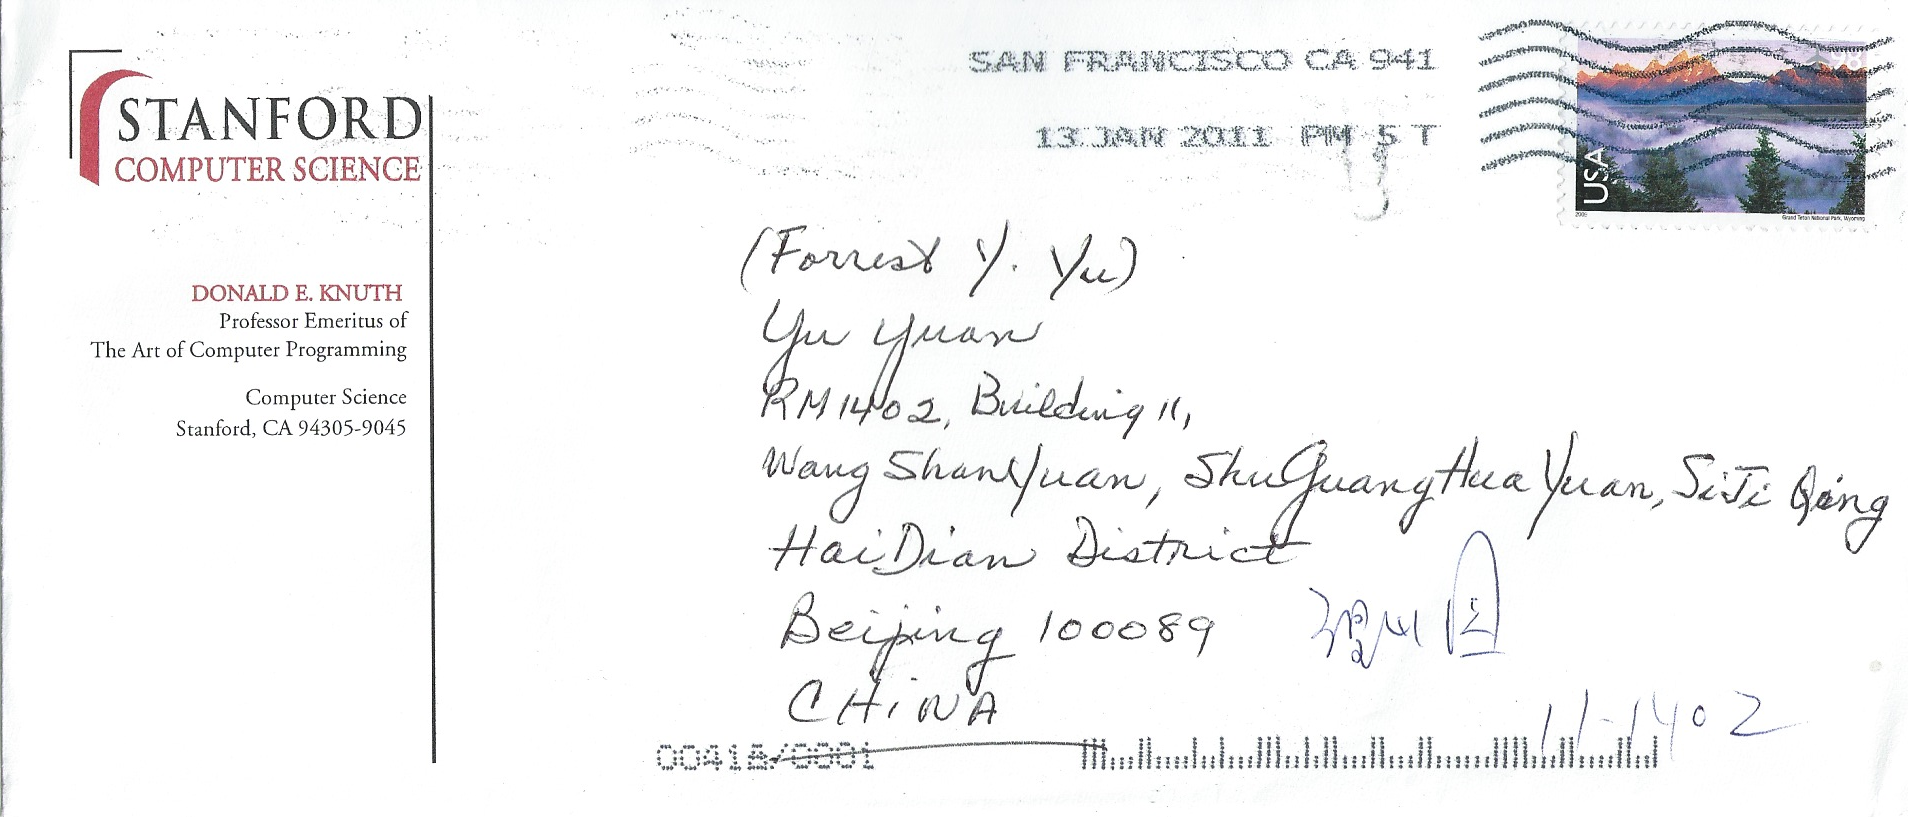 STANFORD
COMPUTER SCIENCE
DONALD E. KNUTH
Professor Emeritus of
The Art of Computer Programming
Computer Science
Stanford, CA 94305-9045
SAN FRANCISCO CA 941
13 JAN 2011 PM 5 T
98
USA
2009
Grand Teton National Park, Wyoming
(Forrest Y. Yu)
Yu Yuan
RM1402, Building 11,
WangShanYuan, ShuGuangHuaYuan, SiJi Qing
HaiDian District
Beijing 100089
CHINA
11-1402
00418/0001